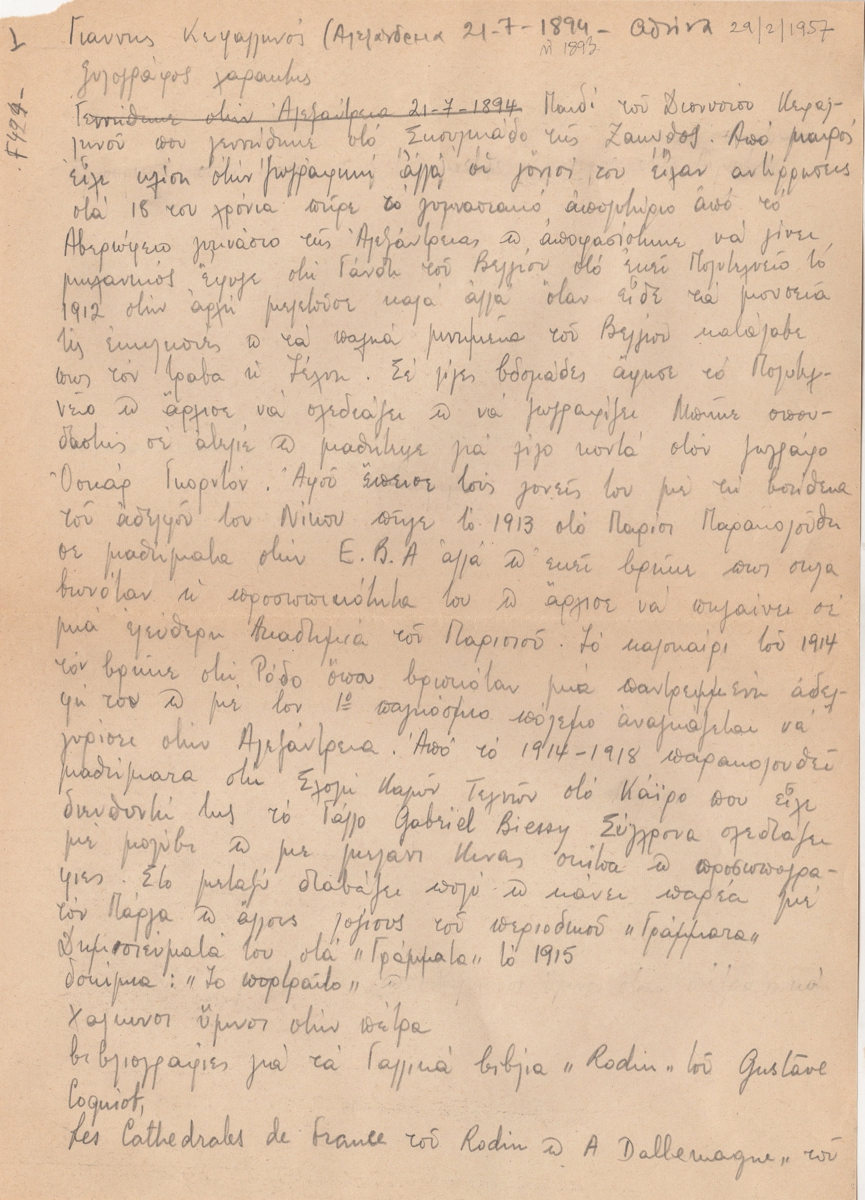 1
F424-
Γιαννης Κεφαλληνός (Αλεξάνδρεια 21-7-1894 - Αθήνα 29/2/1957
ή 1893
ξυλογράφος χαρακτης
Γεννήθηκε στην Ἀλεξάντρεια 21-7-1894 Παιδί τοῦ Διονυσίου Κεφαλ-
ληνοῦ που γεννήθηκε στό Σκουλικάδο τῆς Ζακυνθος. Από μικρός
εἶχε κλίση στήν ζωγραφική ἀλλά οἱ γονιοί του εἶχαν αντίρρησεις
στά 18 του χρόνια πῆρε το γυμνασιακό ἀπολυτήριο ἀπό τό
Αβερώφειο γυμνάσιο τῆς Ἀλεξάντρειας ϖ ἀποφασίστηκε νά γίνει
μηχανικός Ἔφυγε στη Γάνδη τοῦ Βελγίου στό ἐκεῖ Πολυτεχνείο τό
1912 στην ἀρχή μελετοῦσε καλά ἀλλα ὅταν εἶδε τά μουσεία
τίς ἐκκλησιές ϖ τά παλιά μνημεία τοῦ Βελγίου κατάλαβε
πως τόν τραβα ἡ τέχνη. Σέ λίγες βδομάδες ἄφησε τό Πολυτεχ-
νείο ϖ ἄρχισε νά σχεδιάζει ϖ νά ζωγραφίζει Μπῆκε σπου-
δαστής σέ ατελιέ ϖ μαθήτεψε γιά λίγο κοντά στόν ζωγράφο
Ὀσκάρ Γκορντόν. Ἀφοῦ ἔπεισε τούς γονείς του με τη βοήθεια
τοῦ ἀδελφοῦ του Νίκου πῆγε τό 1913 στό Παρίσι Παρακολούθη
σε μαθήματα στην Ε.Β.Α ἀλλά ϖ ἐκεῖ βρῆκε πως σκλα
βωνόταν ἡ προσωπικότητα του ϖ ἄρχισε νά πηγαίνει σέ
μιά ἐλεύθερη Ακαδημιά τοῦ Παρισιοῦ. Τό καλοκαίρι τοῦ 1914
τόν βρῆκε στη Ρόδο ὅπου βρισκόταν μιά παντρεμμένη ἀδελ-
φή του ϖ μέ τον 1º παγκόσμιο πόλεμο ἀναγκάζεται νά
γυρίσει στην Αλεξάντρεια. Ἀπό τό 1914-1918 παρακολουθεῖ
μαθήματα στη Σχολή Καλῶν Τεχνῶν στό Κάϊρο που εἶχε
διευθυντή της τό Γάλλο Gabriël Biessy Σύγχρονα σχεδιάζει
μέ μολύβι ϖ με μελάνι Κινας σκίτσα ϖ προσωπογρα-
φίες. Στο μεταξύ διαβάζει πολύ ϖ κανει παρέα μέ
τόν Πάργα ϖ ἄλλους λογιους τοῦ περιοδικοῦ „Γράμματα„
Δημοσιεύματά του στά „Γράμματα„ τό 1915
δοκίμια: „Το πορτραῖτο„
Χάλκινοι ὕμνοι στήν πέτρα
Βιβλιογραφίες γιά τά Γαλλικά βιβλία „Rodin„ τοῦ Gustave
Coquiot,
Les Cathedrales de France τοῦ Rodin ϖ A Dallemagne„ τοῦ